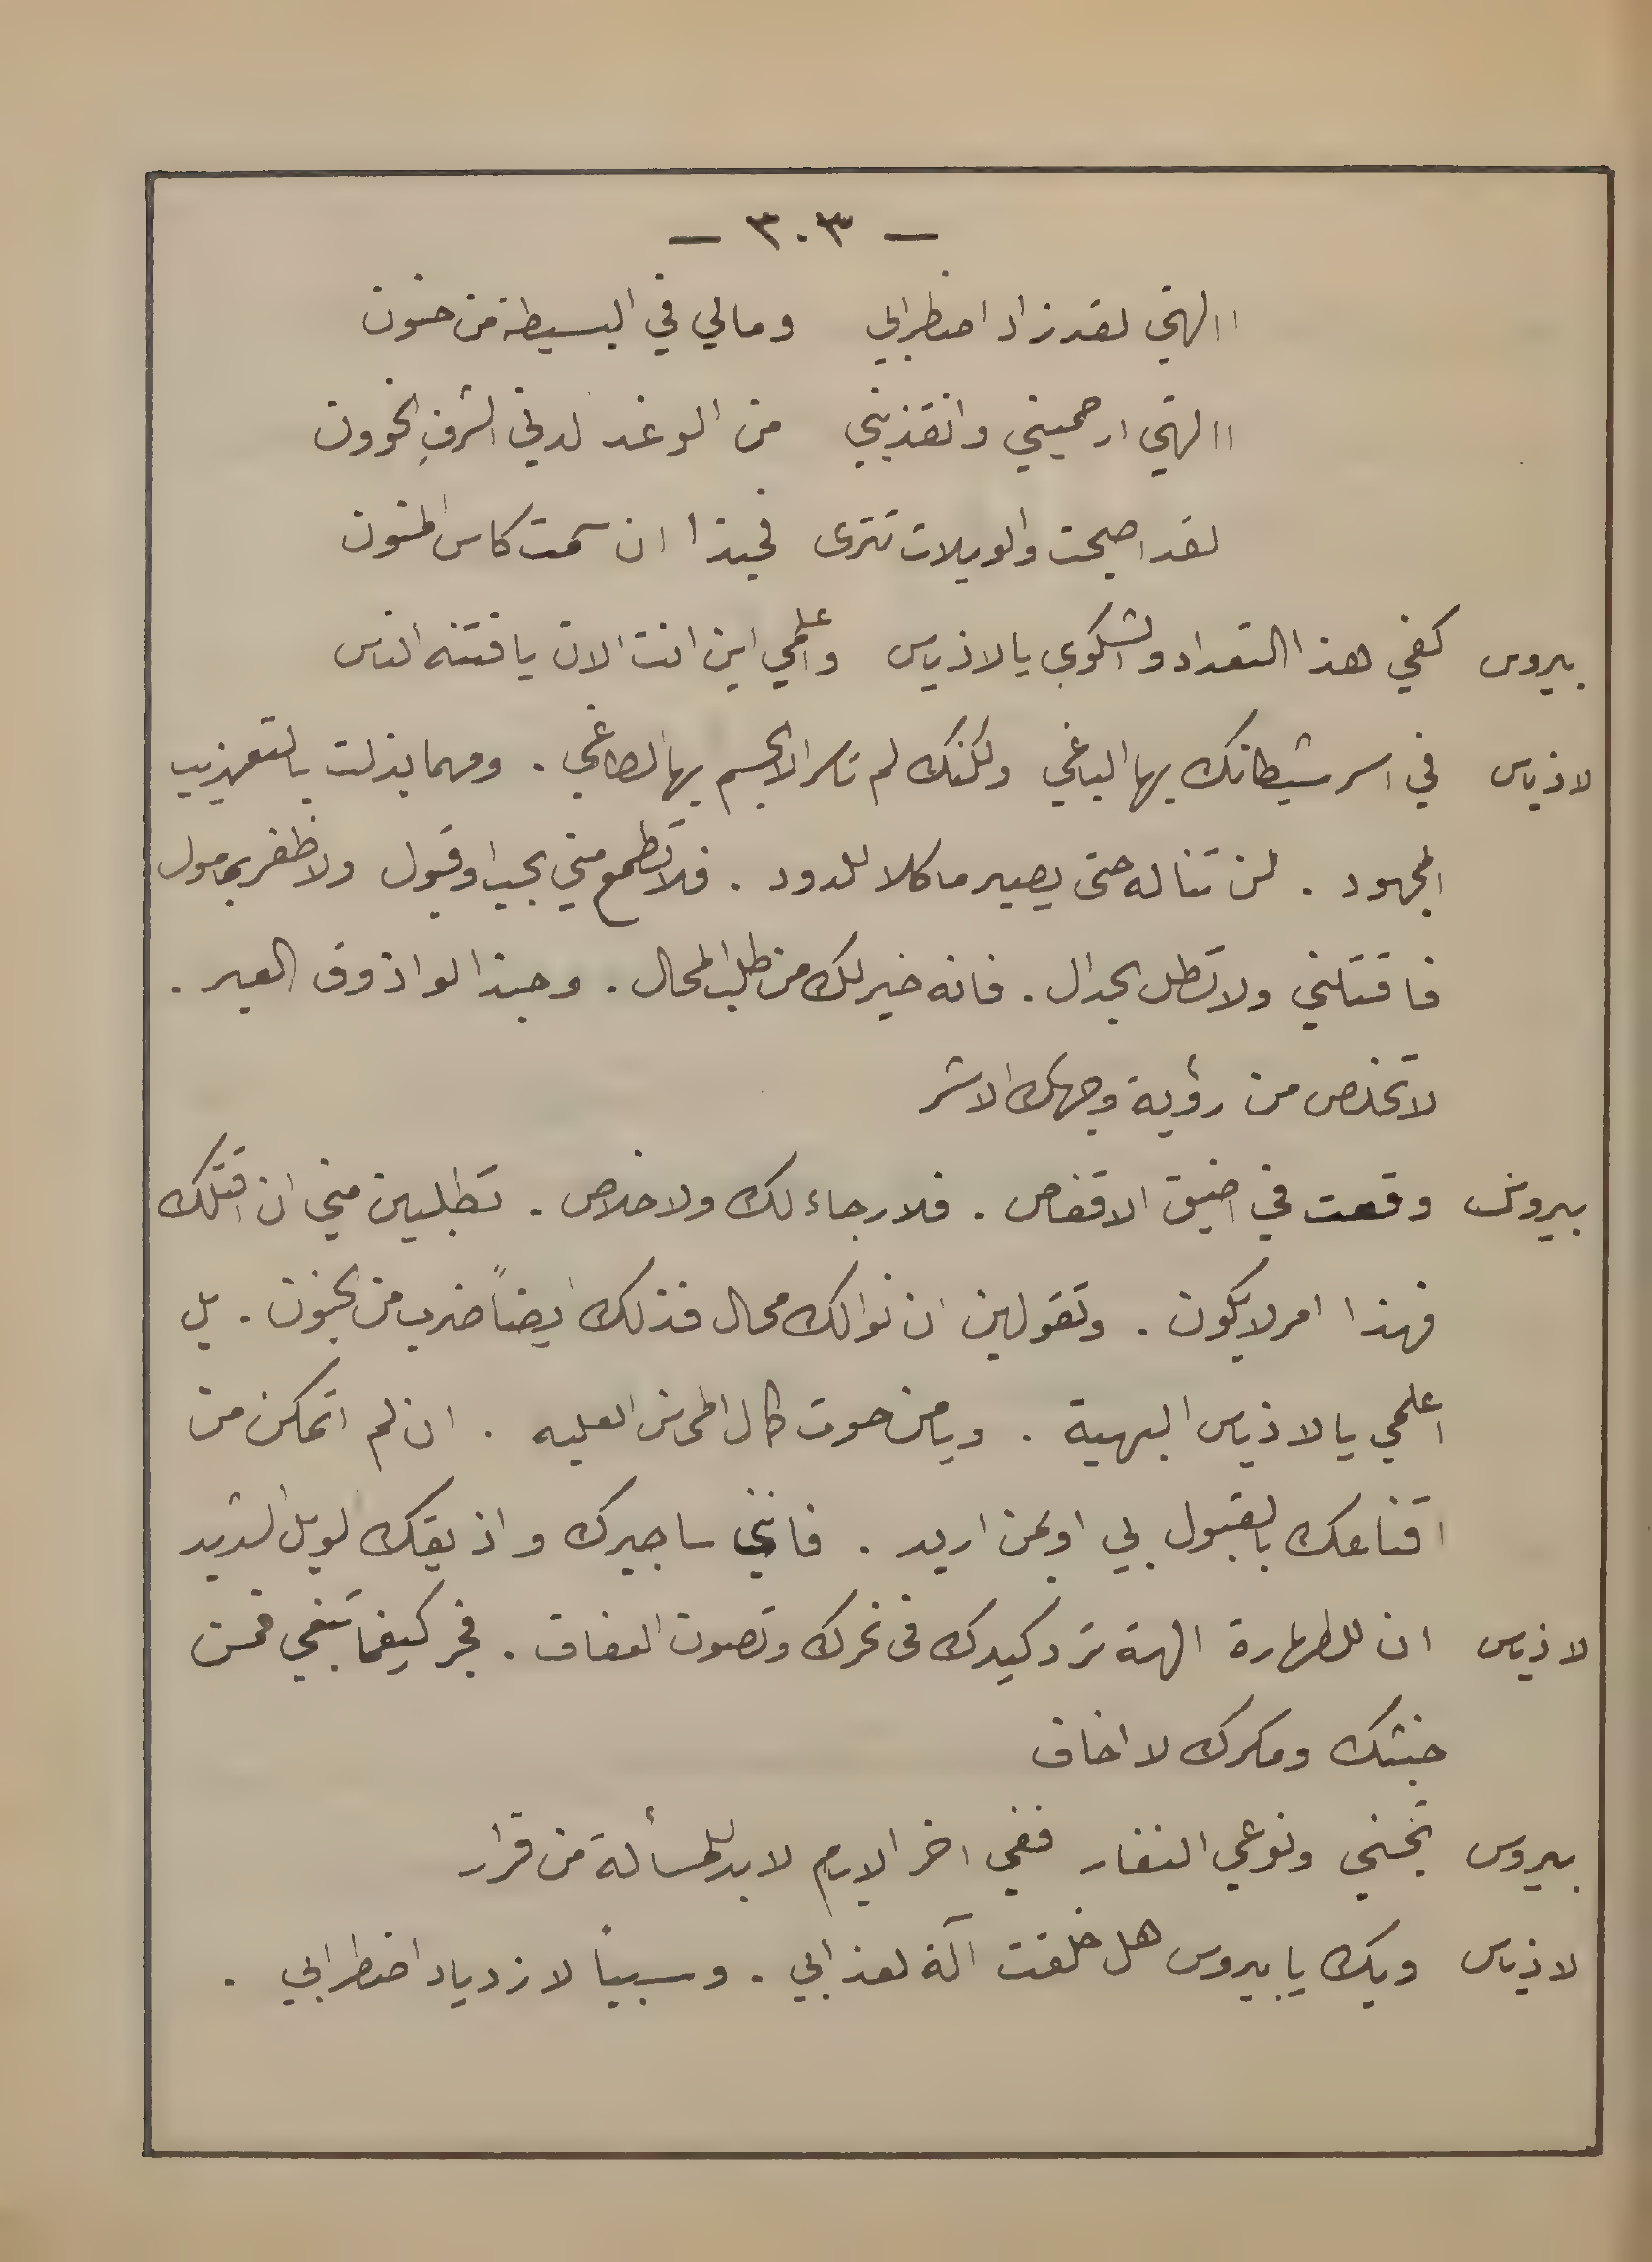 — ٣٠٣ —
االهتي لقد زاد اضطرابي ومالي في البسيطة من حنون
االهتي ارحميني وانقذيني من الوغد لدني الشرف الخوون
لقد اصبحت والويلات تترى فحبذا ان سمت كاس المنون
بيروس كفي هذا التعداد والشكوى يالاذياس واعلمي اين انت الان يا فتنه الناس
لاذياس في اسر شيطانك يها الباغي ولكنك لم تاسر الا الجسم يها الطاغي . ومهما بذلت بالتعذيب
المجهود . لن تناله حتى يصير ماكلا للدود . فلا تطمع مني بحب او قبول ولا ظفر بمامول
فاقتلني ولا تطل بجدال . فانه خير لك من طلب المحال . وحبذا لو اذوق العبر .
لا تخلص من رؤية وجهك الاشر
بيروس وقعت في اضيق الاقفاص . فلا رجاء لك ولا خلاص . تطلبين مني ان اقتلك
فهذا امر لا يكون . وتقولين ان نوالك محال فذلك ايضاً ضرب من الجنون . بل
اعلمي يالاذياس البهية . ويا من حوت كال المزن العليه . ان لم اتمكن من
اقناعك بالقبول بي او بمن اريد . فانني ساجبرك واذيقك لويل الشديد
لاذياس ان للطهارة الهة ترد كيدك في نحرك وتصون العفاف . فجر كيفما تبغي فمن
خبثك ومكرك لا اخاف
بيروس تجني ونوعي النفار ففي اخر الايام لا بد للمسألة من قرار
لاذياس ويك يا بيروس هل خلقت آلة لعذابي . وسبباً لازدياد اضطرابي .